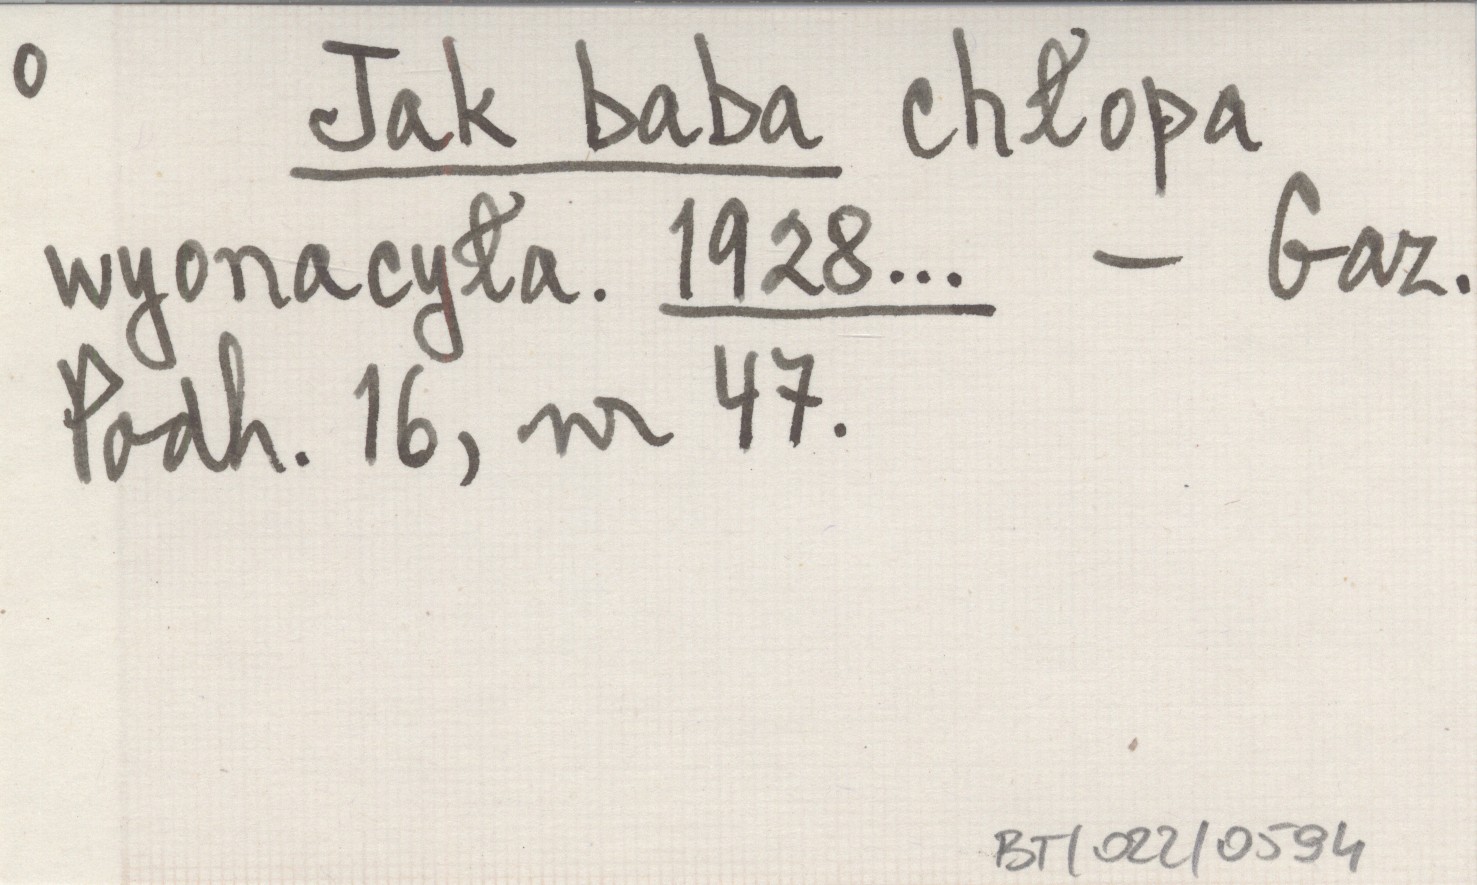 o
Jak baba chłopa
wyonacyła. 1928... – Gaz.
Podh. 16, nr 47.
BT/022/0594